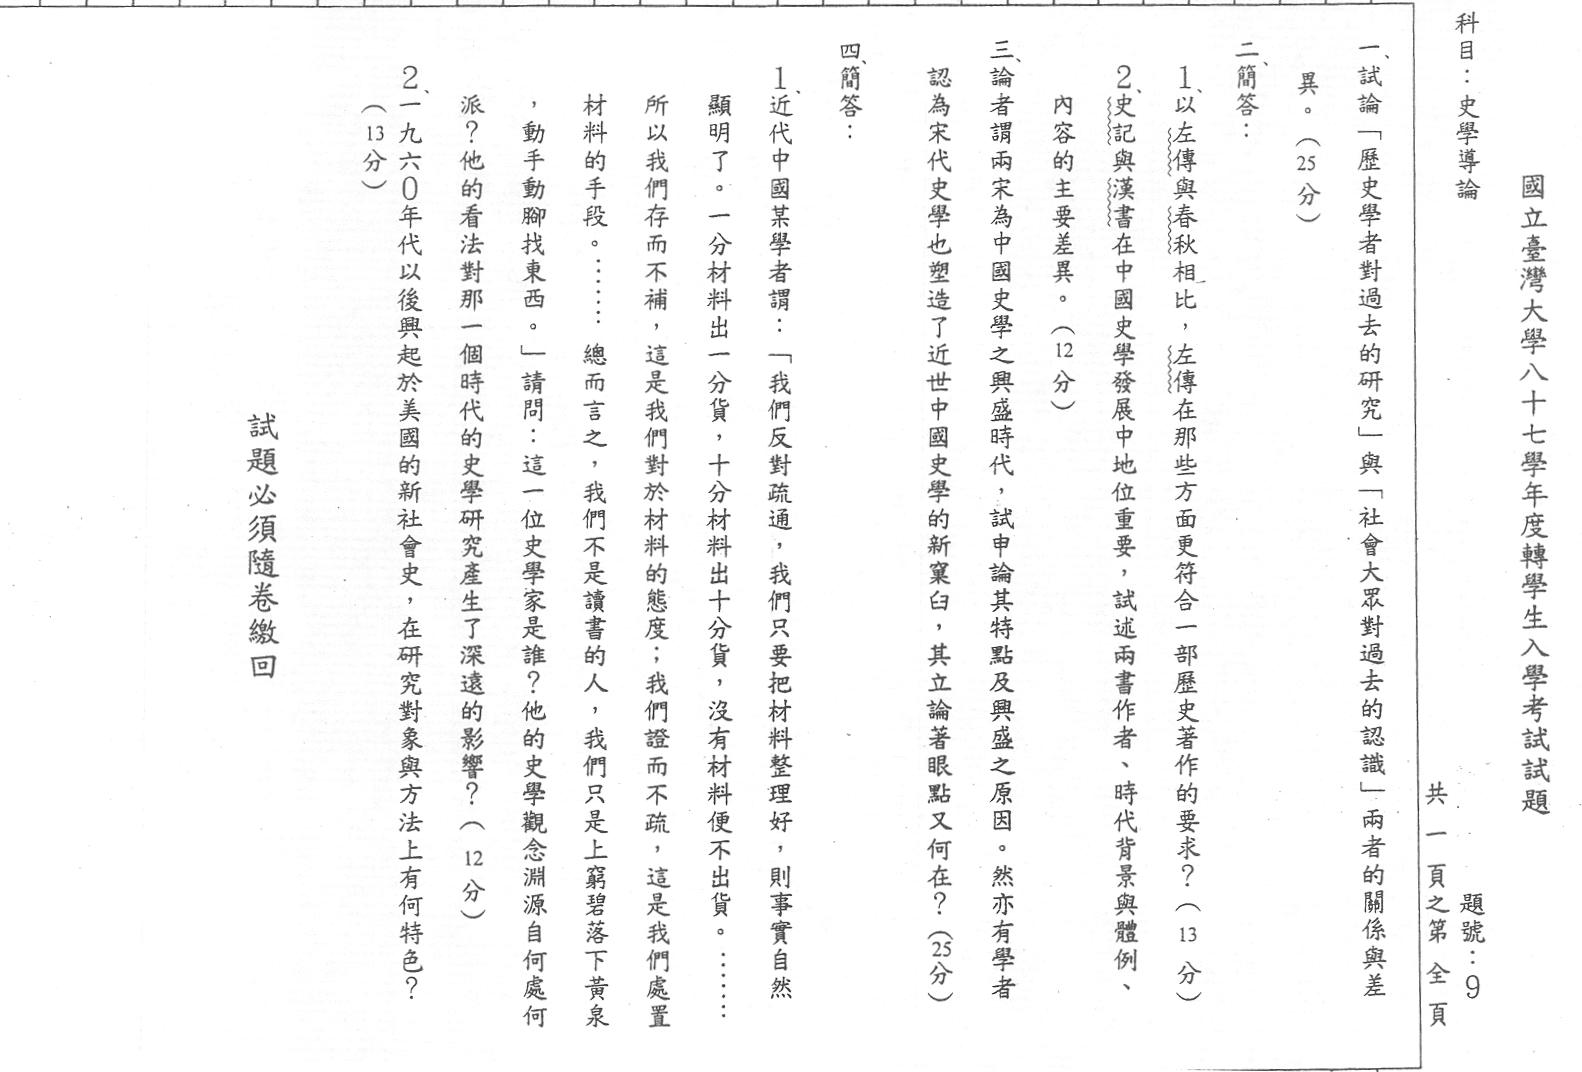 國立臺灣大學八十七學年度轉學生入學考試試題
科目：史學導論
題號：9
共一頁之第全頁
一、試論「歷史學者對過去的研究」與「社會大眾對過去的認識」兩者的關係與差
異。（25分）
二、簡答：
1、以左傳與春秋相比，左傳在那些方面更符合一部歷史著作的要求？（13分）
2、史記與漢書在中國史學發展中地位重要，試述兩書作者、時代背景與體例、
內容的主要差異。（12分）
三、論者謂兩宋為中國史學之興盛時代，試申論其特點及興盛之原因。然亦有學者
認為宋代史學也塑造了近世中國史學的新窠臼，其立論著眼點又何在？（25分）
四、簡答：
1、近代中國某學者謂：「我們反對疏通，我們只要把材料整理好，則事實自然
顯明了。一分材料出一分貨，十分材料出十分貨，沒有材料便不出貨。⋯⋯
所以我們存而不補，這是我們對於材料的態度；我們證而不疏，這是我們處置
材料的手段。⋯⋯總而言之，我們不是讀書的人，我們只是上窮碧落下黃泉
，動手動腳找東西。」請問：這一位史學家是誰？他的史學觀念淵源自何處何
派？他的看法對那一個時代的史學研究產生了深遠的影響？（12分）
2、一九六0年代以後興起於美國的新社會史，在研究對象與方法上有何特色？
（13分）
試題必須隨卷繳回